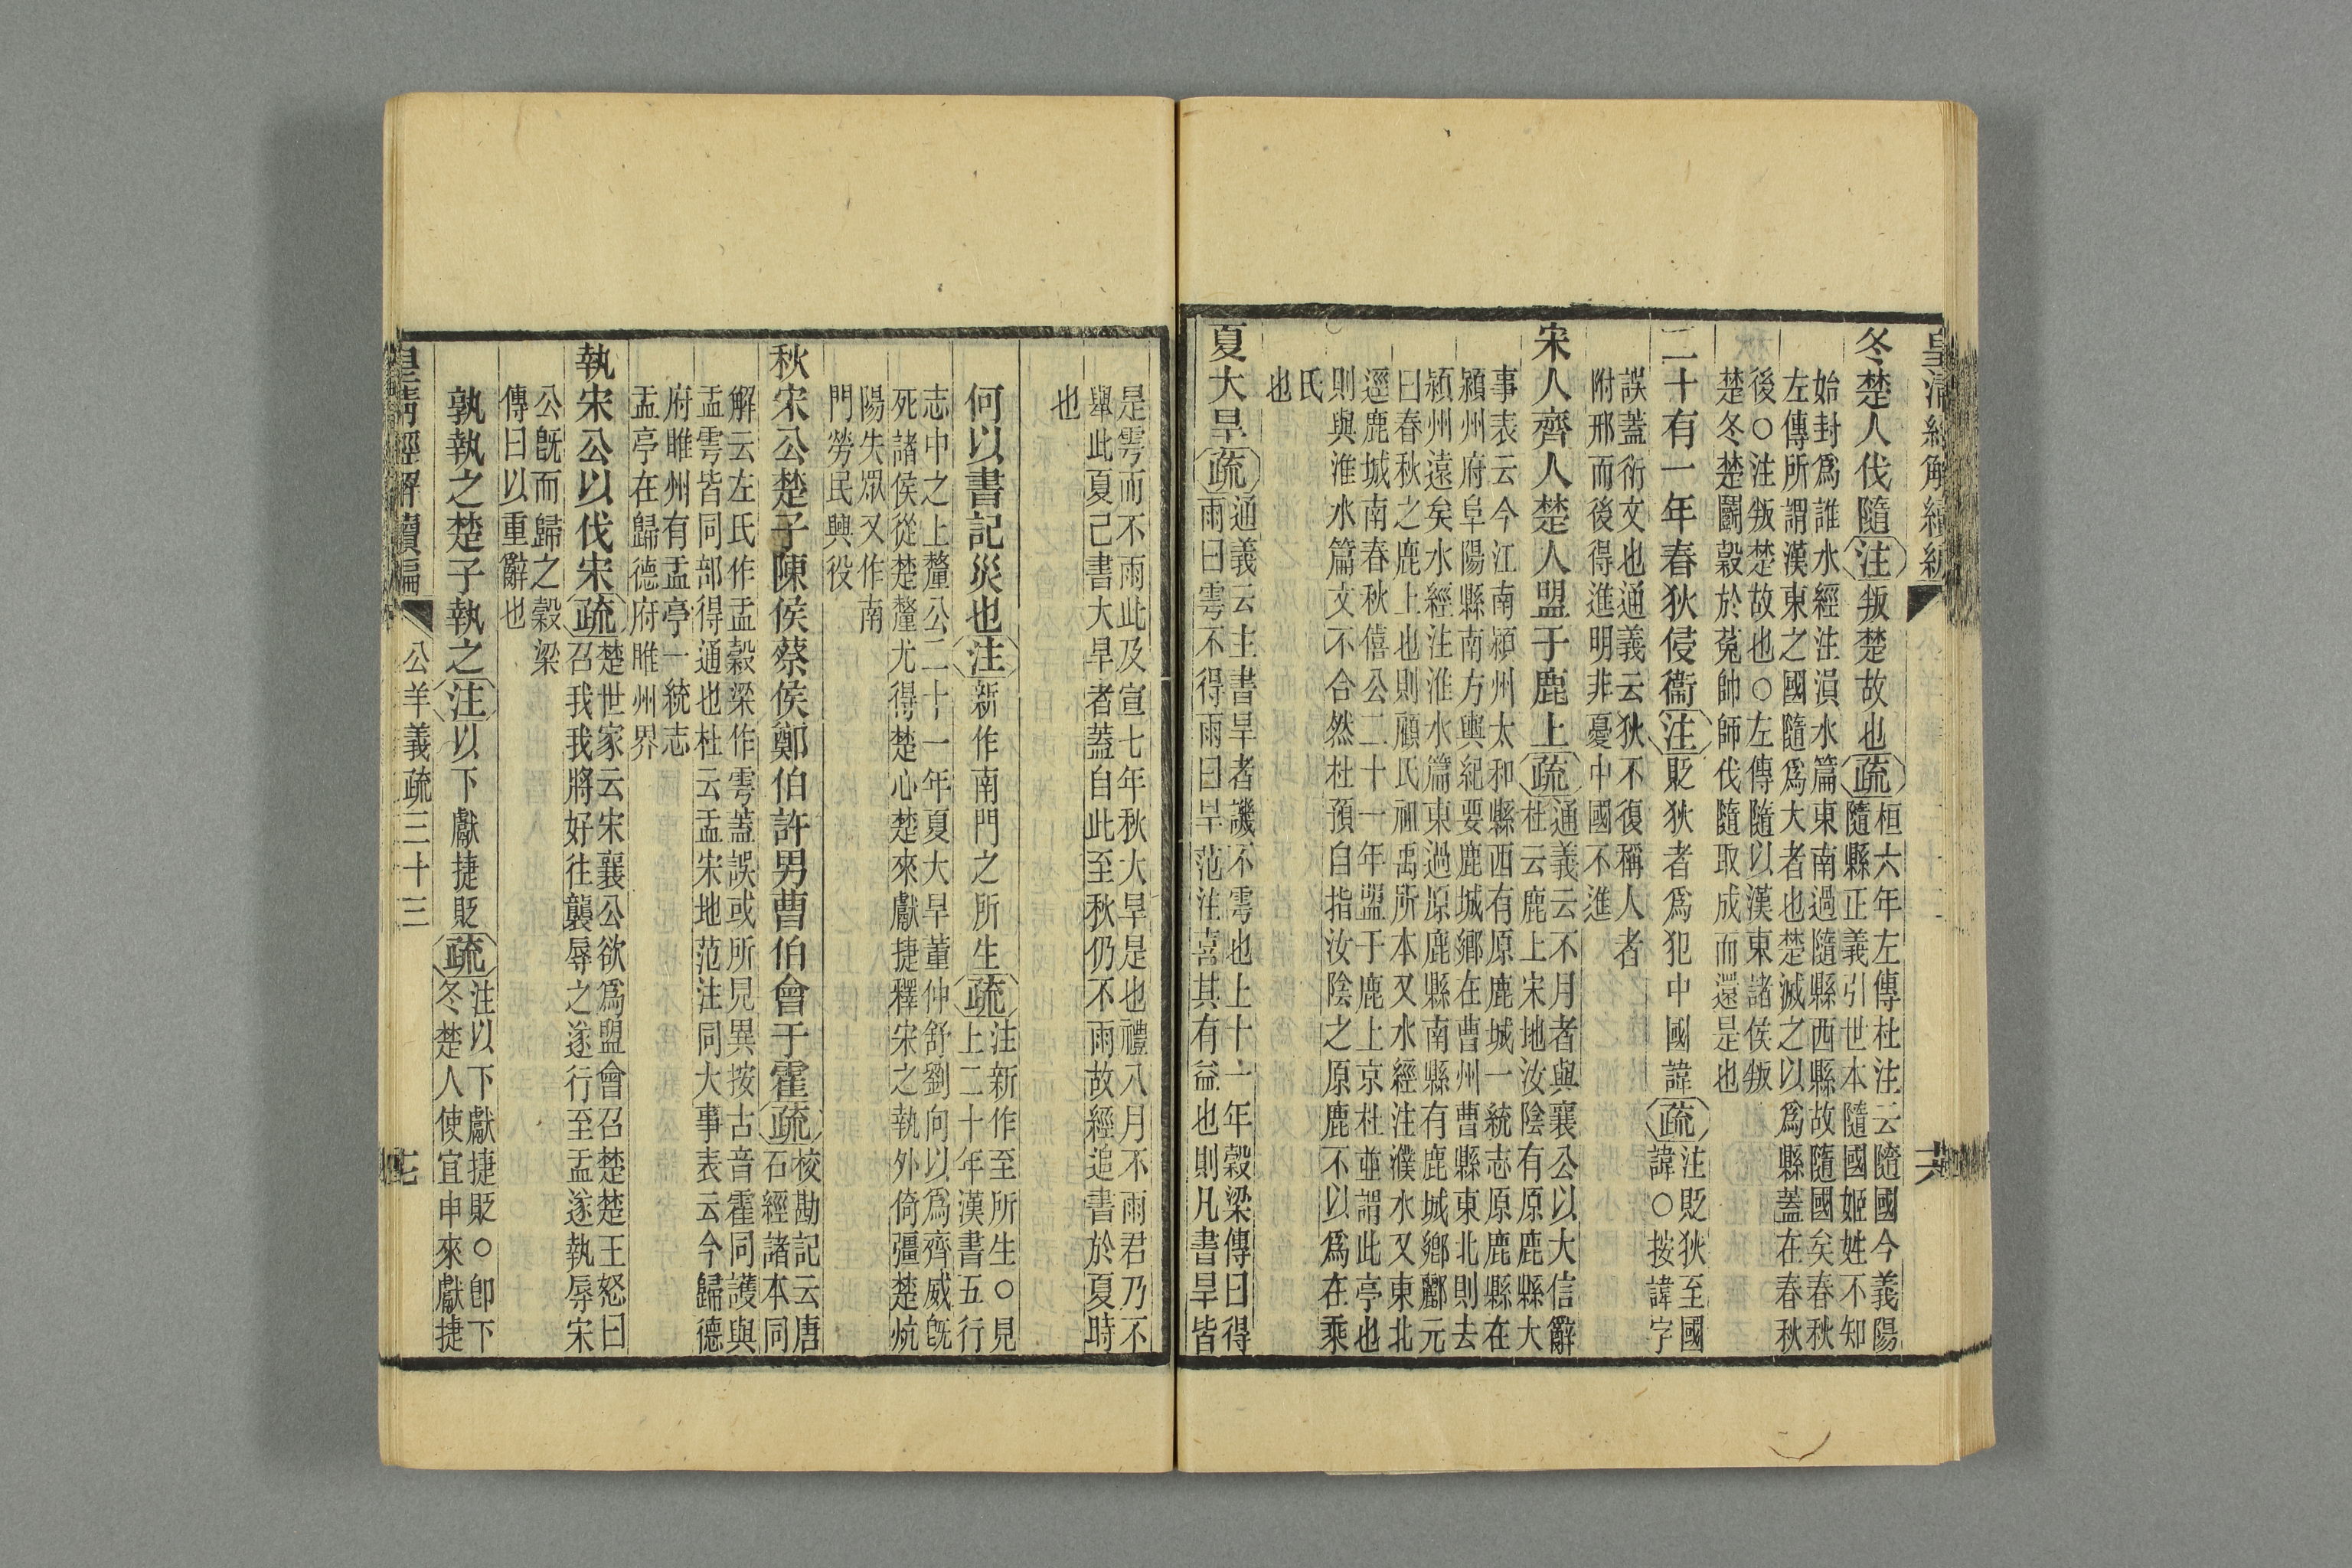 皇清經解續編
冬楚人伐隨注叛楚故也疏桓六年左傳杜注云隨國今義陽
隨縣正義引世本隨國姬姓不知
始封爲誰水經注溳水篇東南過隨縣西縣故隨國矣春秋
左傳所謂漢東之國隨爲大者也楚滅之以爲縣蓋在春秋
後○注叛楚故也○左傳隨以漢東諸侯叛
楚冬楚鬬穀於菟帥師伐隨取成而還是也
二十有一年春狄侵衞注貶狄者爲犯中國諱疏注貶狄至國
諱○按諱字
誤蓋衍文也通義云狄不復稱人者
附邢而後得進明非憂中國不進
宋人齊人楚人盟于鹿上疏通義云不月者與襄公以大信辭
杜云鹿上宋地汝陰有原鹿縣大
事表云今江南潁州太和縣西有原鹿城一統志原鹿縣在
潁州府阜陽縣南方輿紀要鹿城鄉在曹州曹縣東北則去
潁州遠矣水經注淮水篇東過原鹿縣南縣有鹿城鄉酈元
曰春秋之鹿上也則顧氏祖禹所本又水經注濮水又東北
逕鹿城南春秋僖公二十一年盟于鹿上京杜並謂此亭也
則與淮水篇文不合然杜預自指汝陰之原鹿不以爲在乘
氏
也
夏大旱疏通義云主書旱者譏不雩也上十一年穀梁傳曰得
雨曰雩不得雨曰旱范注喜其有益也則凡書旱皆
是雩而不雨此及宣七年秋大旱是也禮八月不雨君乃不
舉此夏已書大旱者蓋自此至秋仍不雨故經追書於夏時
也
何以書記災也注新作南門之所生疏注新作至所生○見
上二十年漢書五行
志中之上釐公二十一年夏大旱董仲舒劉向以爲齊威旣
死諸侯從楚釐尤得楚心楚來獻捷釋宋之執外倚彊楚炕
陽失眾又作南
門勞民興役
秋宋公楚子陳侯蔡侯鄭伯許男曹伯會于霍疏校勘記云唐
石經諸本同
解云左氏作盂穀梁作雩蓋誤或所見異按古音霍同護與
盂雩皆同部得通也杜云盂宋地范注同大事表云今歸德
府睢州有盂亭一統志
盂亭在歸德府睢州界
執宋公以伐宋疏楚世家云宋襄公欲爲盟會召楚楚王怒曰
召我我將好往襲辱之遂行至盂遂執辱宋
公旣而歸之穀梁
傳曰以重辭也
孰執之楚子執之注以下獻捷貶疏注以下獻捷貶○卽下
冬楚人使宜申來獻捷
皇淸經解續編 公羊義疏三十三